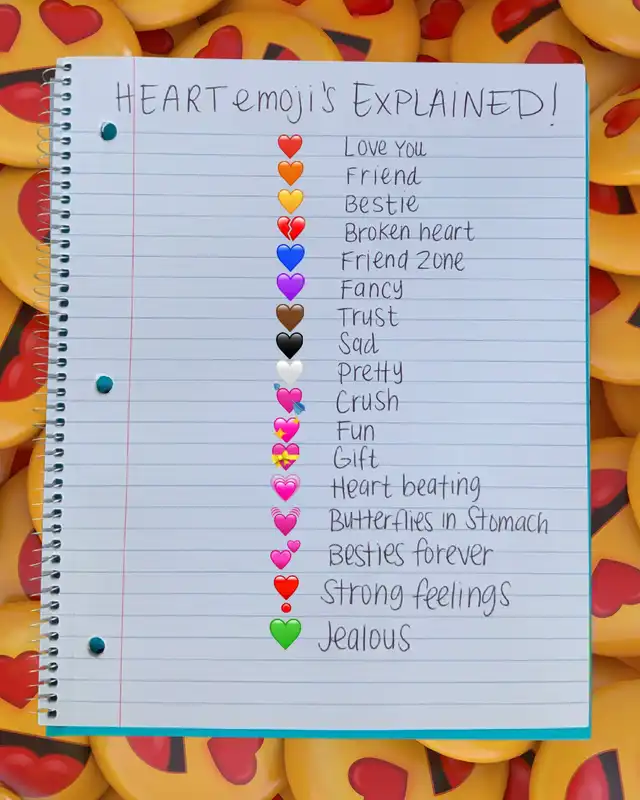 HEART emoji's EXPLAINED!
❤️ Love You
🧡 Friend
💛 Bestie
💔 Broken heart
💙 Friend Zone
💜 Fancy
🤎 Trust
🖤 Sad
🤍 Pretty
💘 Crush
💖 Fun
💝 Gift
💗 Heart beating
💓 Butterflies in Stomach
💕 Besties forever
❣️ Strong feelings
💚 Jealous